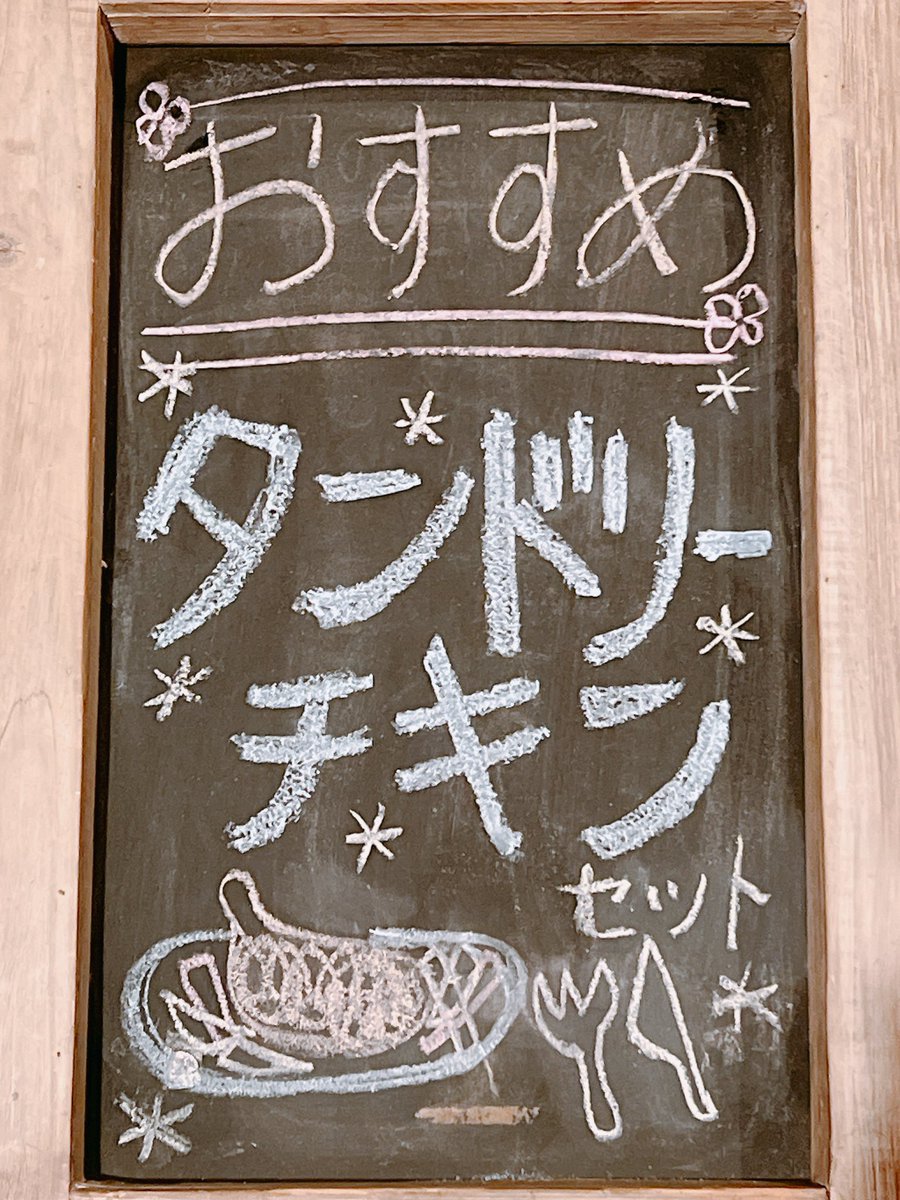 おすすめ
タンドリー
チキン
セット